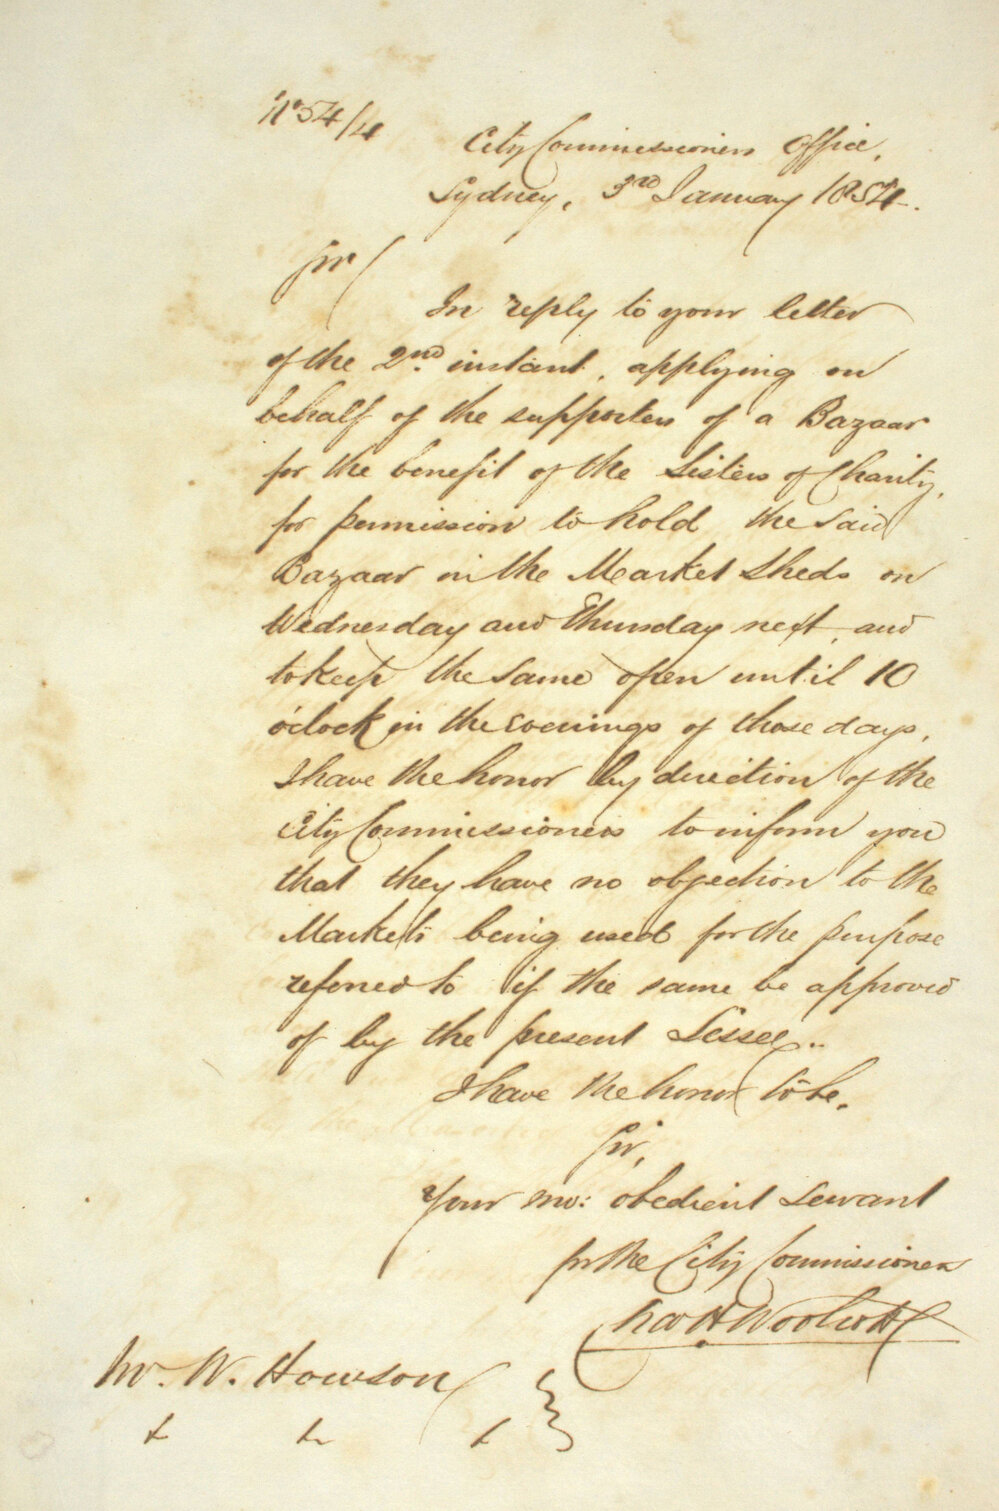 No 54/4
City Commissioners Office,
Sydney, 3rd January 1854.
Sir
In reply to your letter
of the 2nd instant, applying on
behalf of the supporters of a Bazaar
for the benefit of the Sisters of Charity,
for permission to hold the said
Bazaar in the Market Sheds on
Wednesday and Thursday next, and
to keep the same open until 10
o'clock in the evenings of those days,
I have the honor by direction of the
City Commissioners to inform you
that they have no objection to the
Markets being used for the purpose
referred to if the same be approved
of by the present Lessee..
I have the honor to be,
Sir,
Your mo: obedient Servant
for the City Commissioners
Chas H Woolcott
Mr. W. Howson